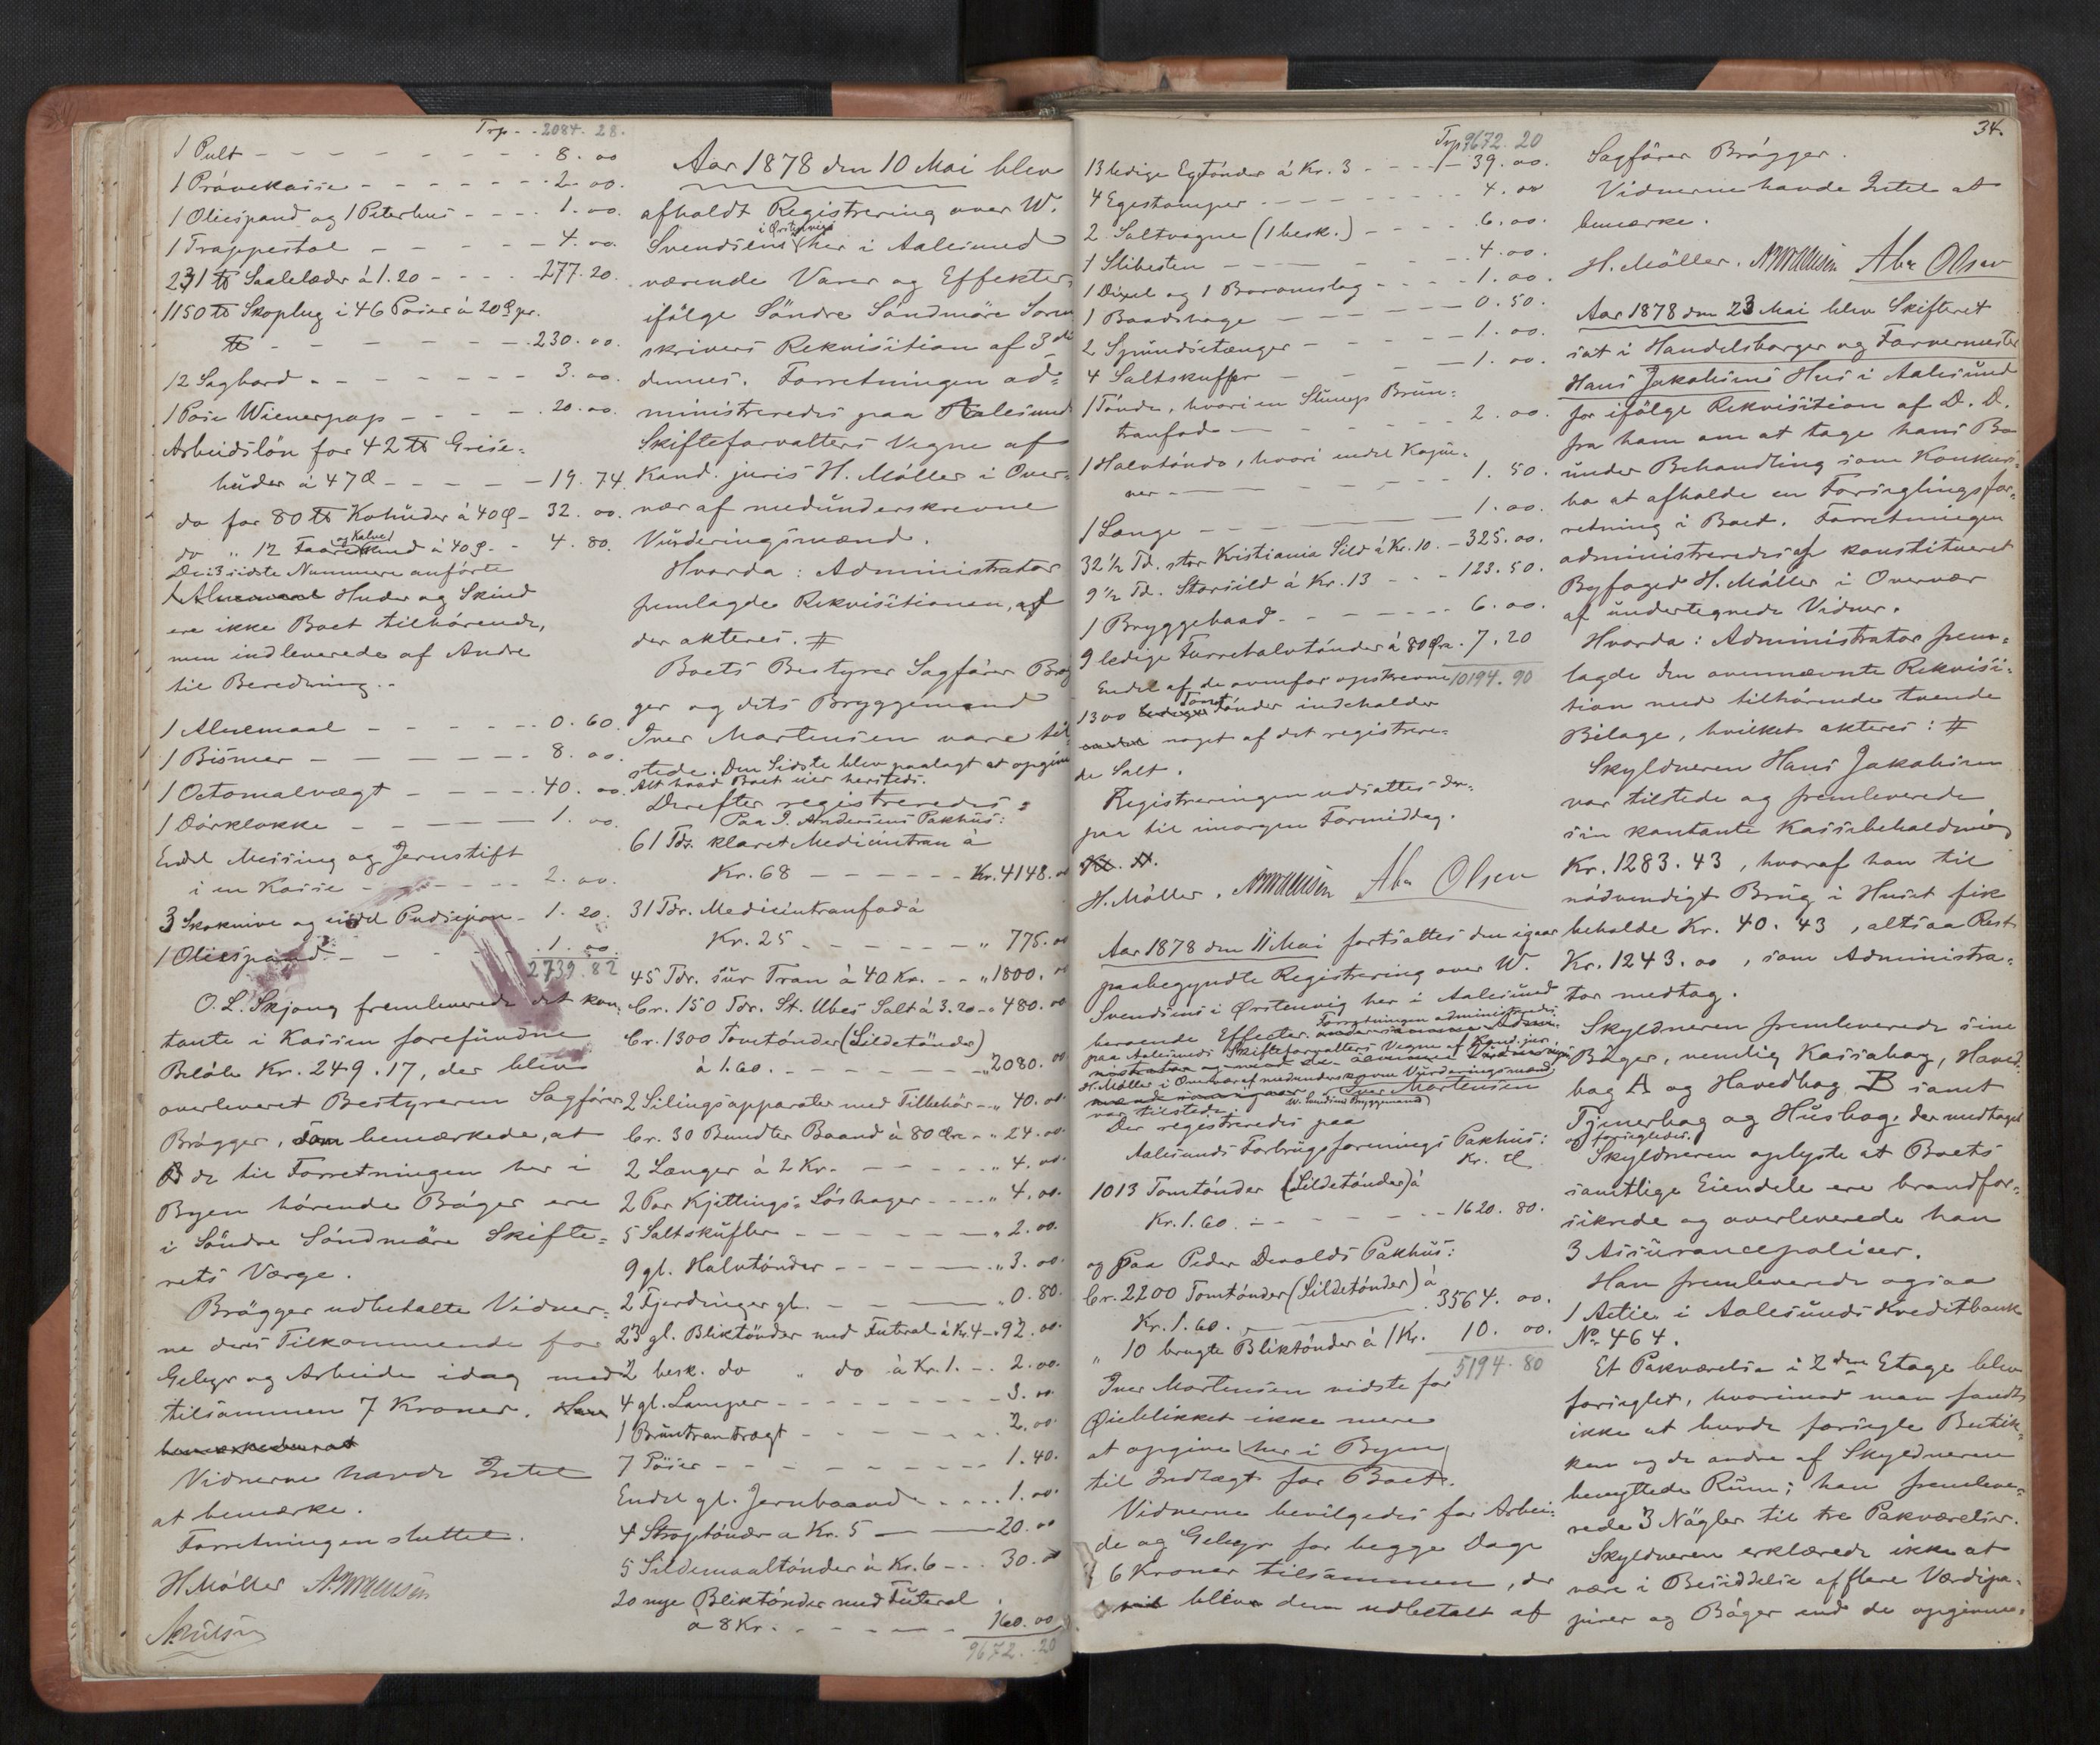 Trp. - 2084. 28.
1 Pult - - - 8. 00
1 Prøvekasse - - - 2. 00.
1 Oliespand og 1 Peterhus - - - 1. 00.
1 Trappestol - - - 4. 00.
231 ℔ Saalelæder á 1.20 - - - 277. 20.
1150 ℔ Skoplug i 46 Poser á 20 Ø pr.
℔ - - - 230. 00.
12 Sagbord - - - 3. 00.
1 Pose Wienerpap - - - 20. 00.
Arbeidsløn for 42 ℔ Grise-
huder á 47 Ø - - - 19. 74.
do for 80 ℔ Kohuder á 40 Ø - 32. 00.
do " 12 Faare og Kalveskind á 40 Ø. - 4. 80.
De i 3 sidste Nummere anførte
Huder og Skind
ere ikke Boet tilhørende,
men indleverede af Andre
til Beredning. -
1 Alnemaal - - - 0. 60.
1 Bismer - - - 8. 00.
1 Octomalvægt - - - 40. 00.
1 Dørklokke - - - 1. 00.
Endel Messing og Jernstift
i en Kasse - - - 2. 00.
3 Skoknive og endel Pudsejern - 1. 20.
1 Oliespand - - - 1. 00.
2739. 82
O. L. Skjong fremleverede det kon-
tante i Kassen forefundne
Beløb Kr. 249. 17, der blev
overleveret Bestyreren Sagfører
Brøgger, som bemærkede, at
de til Forretningen her i
Byen hørende Bøger ere
i Søndre Søndmøre Skifte-
rets Værge.
Brøgger udbetalte Vidner-
ne deres Tilkommende for
Gebyr og Arbeide idag med
tilsammen 7 Kroner. Han
bemærkede at
Vidnerne havde Intet
at bemærke.
Forretningen sluttet.
H. Møller
Aar 1878 den 10 Mai blev
afholdt Registrering over W.
Svendsens i Ørstenvig her i Aalesund
værende Varer og Effekter,
ifølge Søndre Søndmøre Soren
skrivers Rekvisition af 3die
dennes. Forretningen ad-
ministreredes paa Aalesunds
Skifteforvalters Vegne af
Kand. juris H. Møller i Over-
vær af medunderskrevne
Vurderingsmænd.
Hvorda: Administrator
fremlagde Rekvisitionen, af
der akteres. #
Boets Bestyrer Sagfører Brøg
ger og dets Bryggemand
Iver Martensen vare til-
stede. Den Sidste blev paalagt at opgive
Alt hvad Boet eier hersteds.
Derefter registreredes:
Paa J. Andersens Pakhus:
61 Tdr. klaret Medicintran á
Kr. 68 - - - Kr. 4148. 00
31 Tdr. Medicintranfad á
Kr. 25 - - - " 775. 00
45 Tdr. sur Tran á 40 Kr. - - " 1800. 00
Cr. 150 Tdr. St. Ubes Salt á 3.20 - " 480. 00
Cr. 1300 Tomtønder (Sildetønder)
á 1.60. - - - " 2080. 00
2 Silingsapparater med Tilbehør - " 40. 00
Cr. 30 Bundter Baand á 80 Øre - " 24. 00
2 Længer á 2 Kr. - - - " 4. 00.
2 Par Kjettings-Løshager - - - " 4. 00.
5 Saltskufler - - - " 2. 00.
9 gl. Halvtønder - - - " 3. 00.
2 Fjerdinger gl. - - - " 0. 80.
23 gl. Bliktønder med Futeral á Kr. 4 - " 92. 00.
2 besk. do " do á Kr. 1. - . 2. 00.
4 gl. Lamper - - - 3. 00.
1 Bruntrantragt - - - 2. 00.
7 Pøser - - - 1. 40.
Endel gl. Jernbaand - - - 1. 00.
4 Stroptønder a Kr. 5 - - - 20. 00
5 Sildemaaltønder á Kr. 6 - - - 30. 00
20 nye Bliktønder med Futeral
á 8 Kr. - - - 160. 00
9672. 20
34.
Trp 9672. 20
13 ledige Egetønder á Kr. 3 - - - 39. 00.
4 Egestamper - - - 4. 00
2 Saltvogne (1 besk.) - - - 6. 00.
1 Slibesten - - - 4. 00.
1 Dixel og 1 Boromslag - - - 1. 00.
1 Baadshage - - - 0. 50.
2 Spundsetænger - - - 1. 00.
4 Saltskuffer - - - 1. 00.
1 Tønde, hvori en Slump Brun-
tranfod - - - 2. 00.
1 Halvtønde, hvori endel Kagu-
ner - - - 1. 50.
1 Længe - - - 1. 00.
32 1/2 Td. stor Kristiania Sild á Kr. 10. - 325. 00.
9 1/2 Td. Storsild á Kr. 13 - - - 123. 50.
1 Bryggebaad - - - 6. 00.
9 ledige Furrehalvtønder á 80 Øre. 7. 20
10194. 90
Endel af de ovenfor opskrevne
1300 Tomtønder indeholder
noget af det registrere-
de Salt.
Registreringen udsattes der-
paa til imorgen Formiddag.
H. Møller. Olsen
Aar 1878 den 11 Mai fortsattes den igaar
paabegyndte Registrering over W.
Svendsens i Ørstenvig her i Aalesund
beroende Effecter. Forretningen administreredes
paa Aalesunds Skifteforvalters Vegne af Kand. jur.
H. Møller i Overvær af medunderskrevne Vurderingsmænd
Iver Martensen
W. Svendsens Bryggemand
var tilstede.
Der registreredes paa
Aalesunds Forbrugsforenings Pakhus:
Kr. Ø
1013 Tomtønder (Sildetønder) á
Kr. 1.60. - - - 1620. 80.
og paa Peder Devolds Pakhus:
Cr. 2200 Tomtønder (Sildetønder) á
Kr. 1.60. - - - 3564. 00.
" 10 brugte Bliktønder á 1 Kr. 10. 00.
5194. 80
Iver Martensen vidste for
Øieblikket ikke mere
at opgive her i Byen
til Indtægt for Boet.
Vidnerne bevilgedes for Arbei-
de og Gebyr for begge Dage
6 Kroner tilsammen, der
blev dem udbetalt af
Sagfører Brøgger.
Vidnerne havde Intet at
bemærke.
H. Møller. Olsen
Aar 1878 den 23 Mai blev Skifteret
sat i Handelsborger og Farvermester
Hans Jakobsens Hus i Aalesund
for ifølge Rekvisition af D. D.
fra ham om at tage hans Bo
under Behandling som Konkurs-
bo at afholde en Forseglingsfor-
retning i Boet. Forretningen
administreredes af konstitueret
Byfoged H. Møller i Overvær
af undertegnede Vidner.
Hvorda: Administrator frem-
lagde den ovennævnte Rekvisi-
tion med tilhørende tvende
Bilage, hvilket akteres: #
Skyldneren Hans Jakobsen
var tilstede og fremleverede
sin kontante Kassebeholdning
Kr. 1283. 43, hvoraf han til
nødvendigt Brug i Huset fik
beholde Kr. 40. 43, altsaa Rest
Kr. 1243. 00, som Administra-
tor medtog.
Skyldneren fremleverede sine
Bøger, nemlig Kassabog, Hoved-
bog A og Hovedbog B samt
Tjenerbog og Husbog, der medtoges
og forsegledes.
Skyldneren oplyste at Boets
samtlige Eiendele ere brandfor-
sikrede og overleverede han
3 Assurancepolicer.
Han fremleverede ogsaa
1 Actie i Aalesunds Kreditbank
No 464.
Et Pakværelse i 2den Etage blev
forseglet, hvorimod man fandt
ikke at burde forsegle Butik-
ken og de andre af Skyldneren
benyttede Rum; han fremleve-
rede 3 Nøgler til tre Pakværelser.
Skyldneren erklærede ikke at
være i Besiddelse af flere Værdipa-
pirer og Bøger end de opgivne.